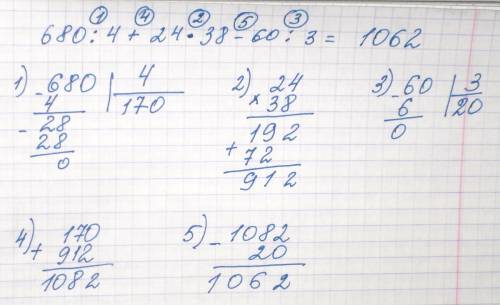 ① ④ ② ⑤ ③
680 : 4 + 24 · 38 - 60 : 3 = 1062
1) - 680 | 4
4 | 170
- 28
28
0
2) × 24
38
192
+ 72
912
3) - 60 | 3
6 | 20
0
4) + 170
912
1082
5) - 1082
20
1062